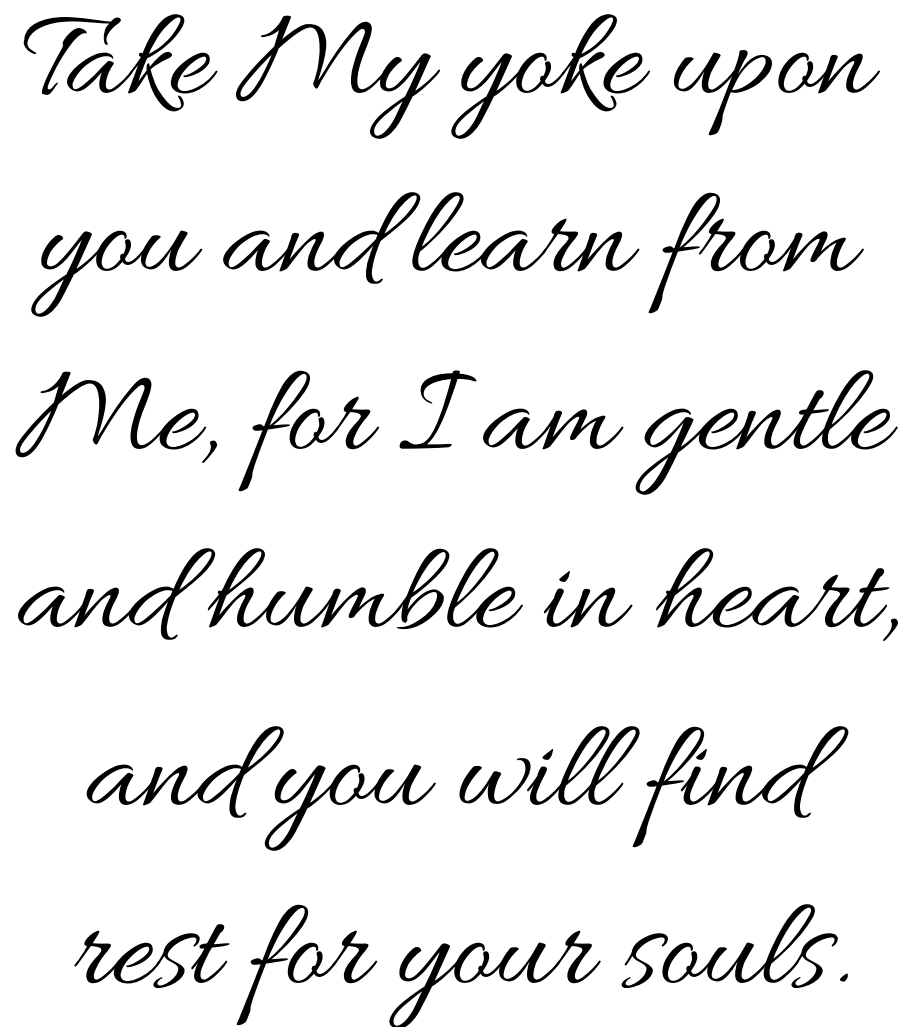 Take My yoke upon
you and learn from
Me, for I am gentle
and humble in heart,
and you will find
rest for your souls.